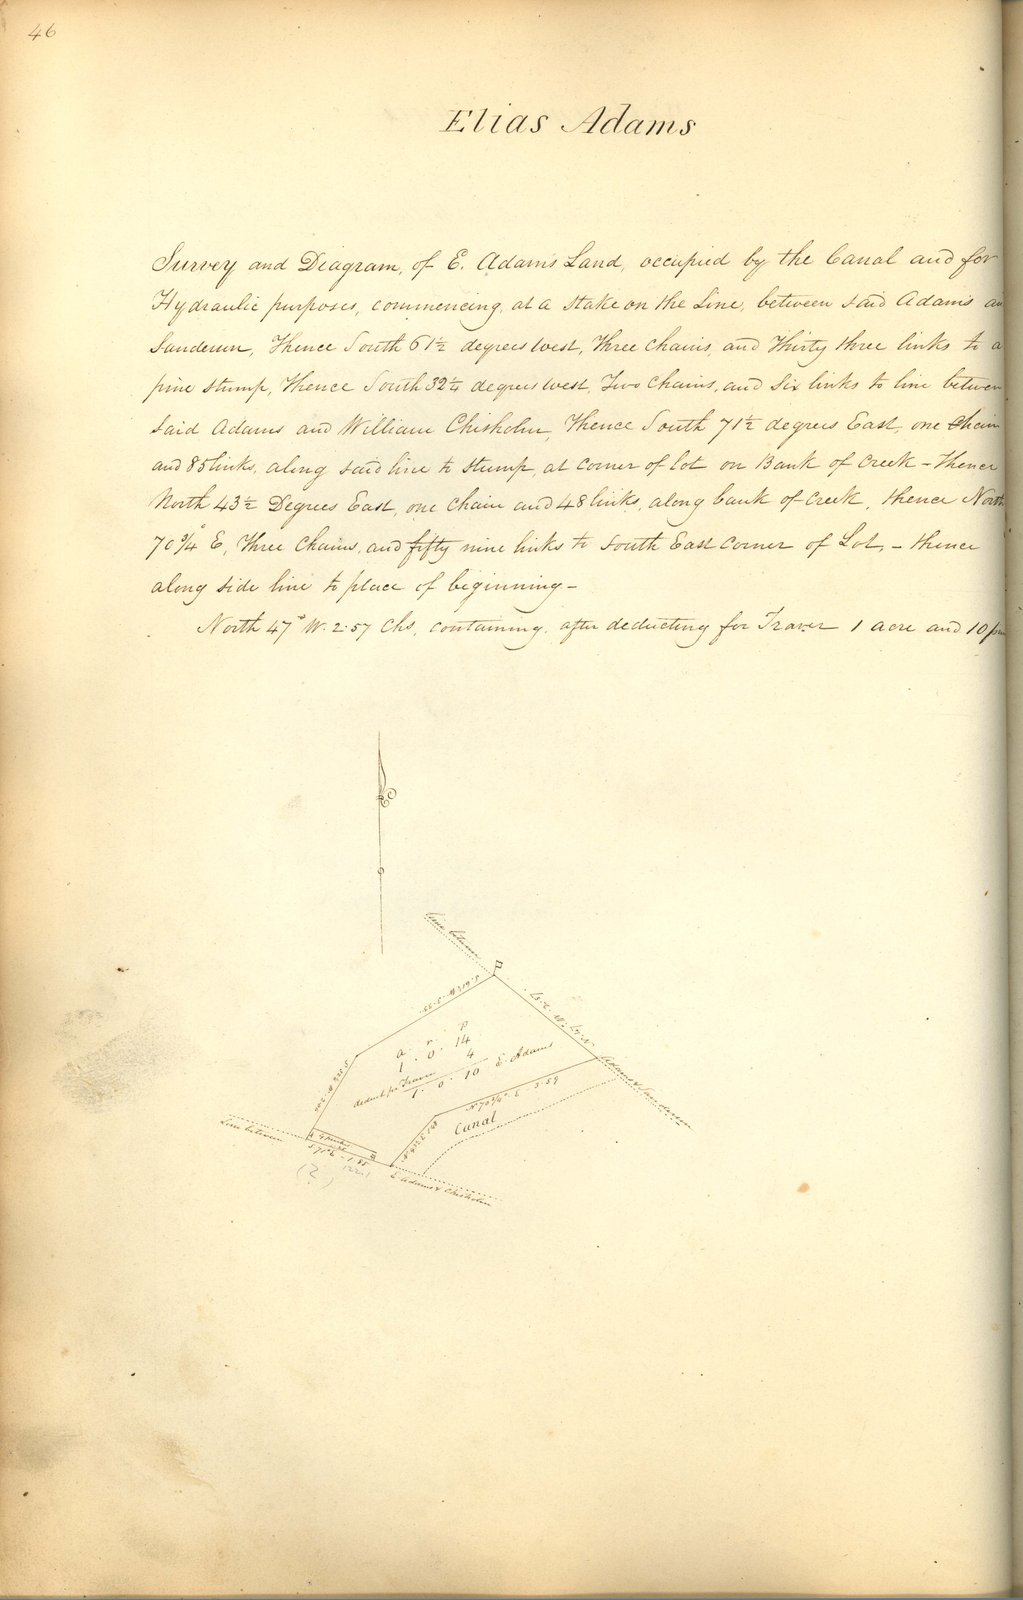 46
Elias Adams
Survey and Diagram, of E. Adam's Land, occupied by the Canal and for
Hydraulic purposes, commencing, at a Stake on the Line, between said Adams an
Sanderson, Thence South 61½ degrees west, Three chains, and Thirty three links to a
pine stump, Thence South 32¼ degrees west, Two Chains, and Six links to line between
said Adams and William Chisholm, Thence South 71½ degrees East, one Chain
and 85 links, along said line to stump, at corner of lot on Bank of Creek – Thence
North 43½ Degrees East, one chain and 48 links, along bank of creek, thence North
70¾° E, Three Chains, and fifty nine links to South East corner of Lot, – thence
along side line to place of beginning –
North 47° W. 2.57 Chs, containing, after deducting for Traver 1 acre and 10
line between
N. 47. W. 2.57
a r p
1. 0. 14
4
deduct for Traver
1. 0. 10
E. Adams
Adams & Sanderson
N 70¾° E - 3.59
Canal
Line between
1.85
(2)
E Adams & Chisholm